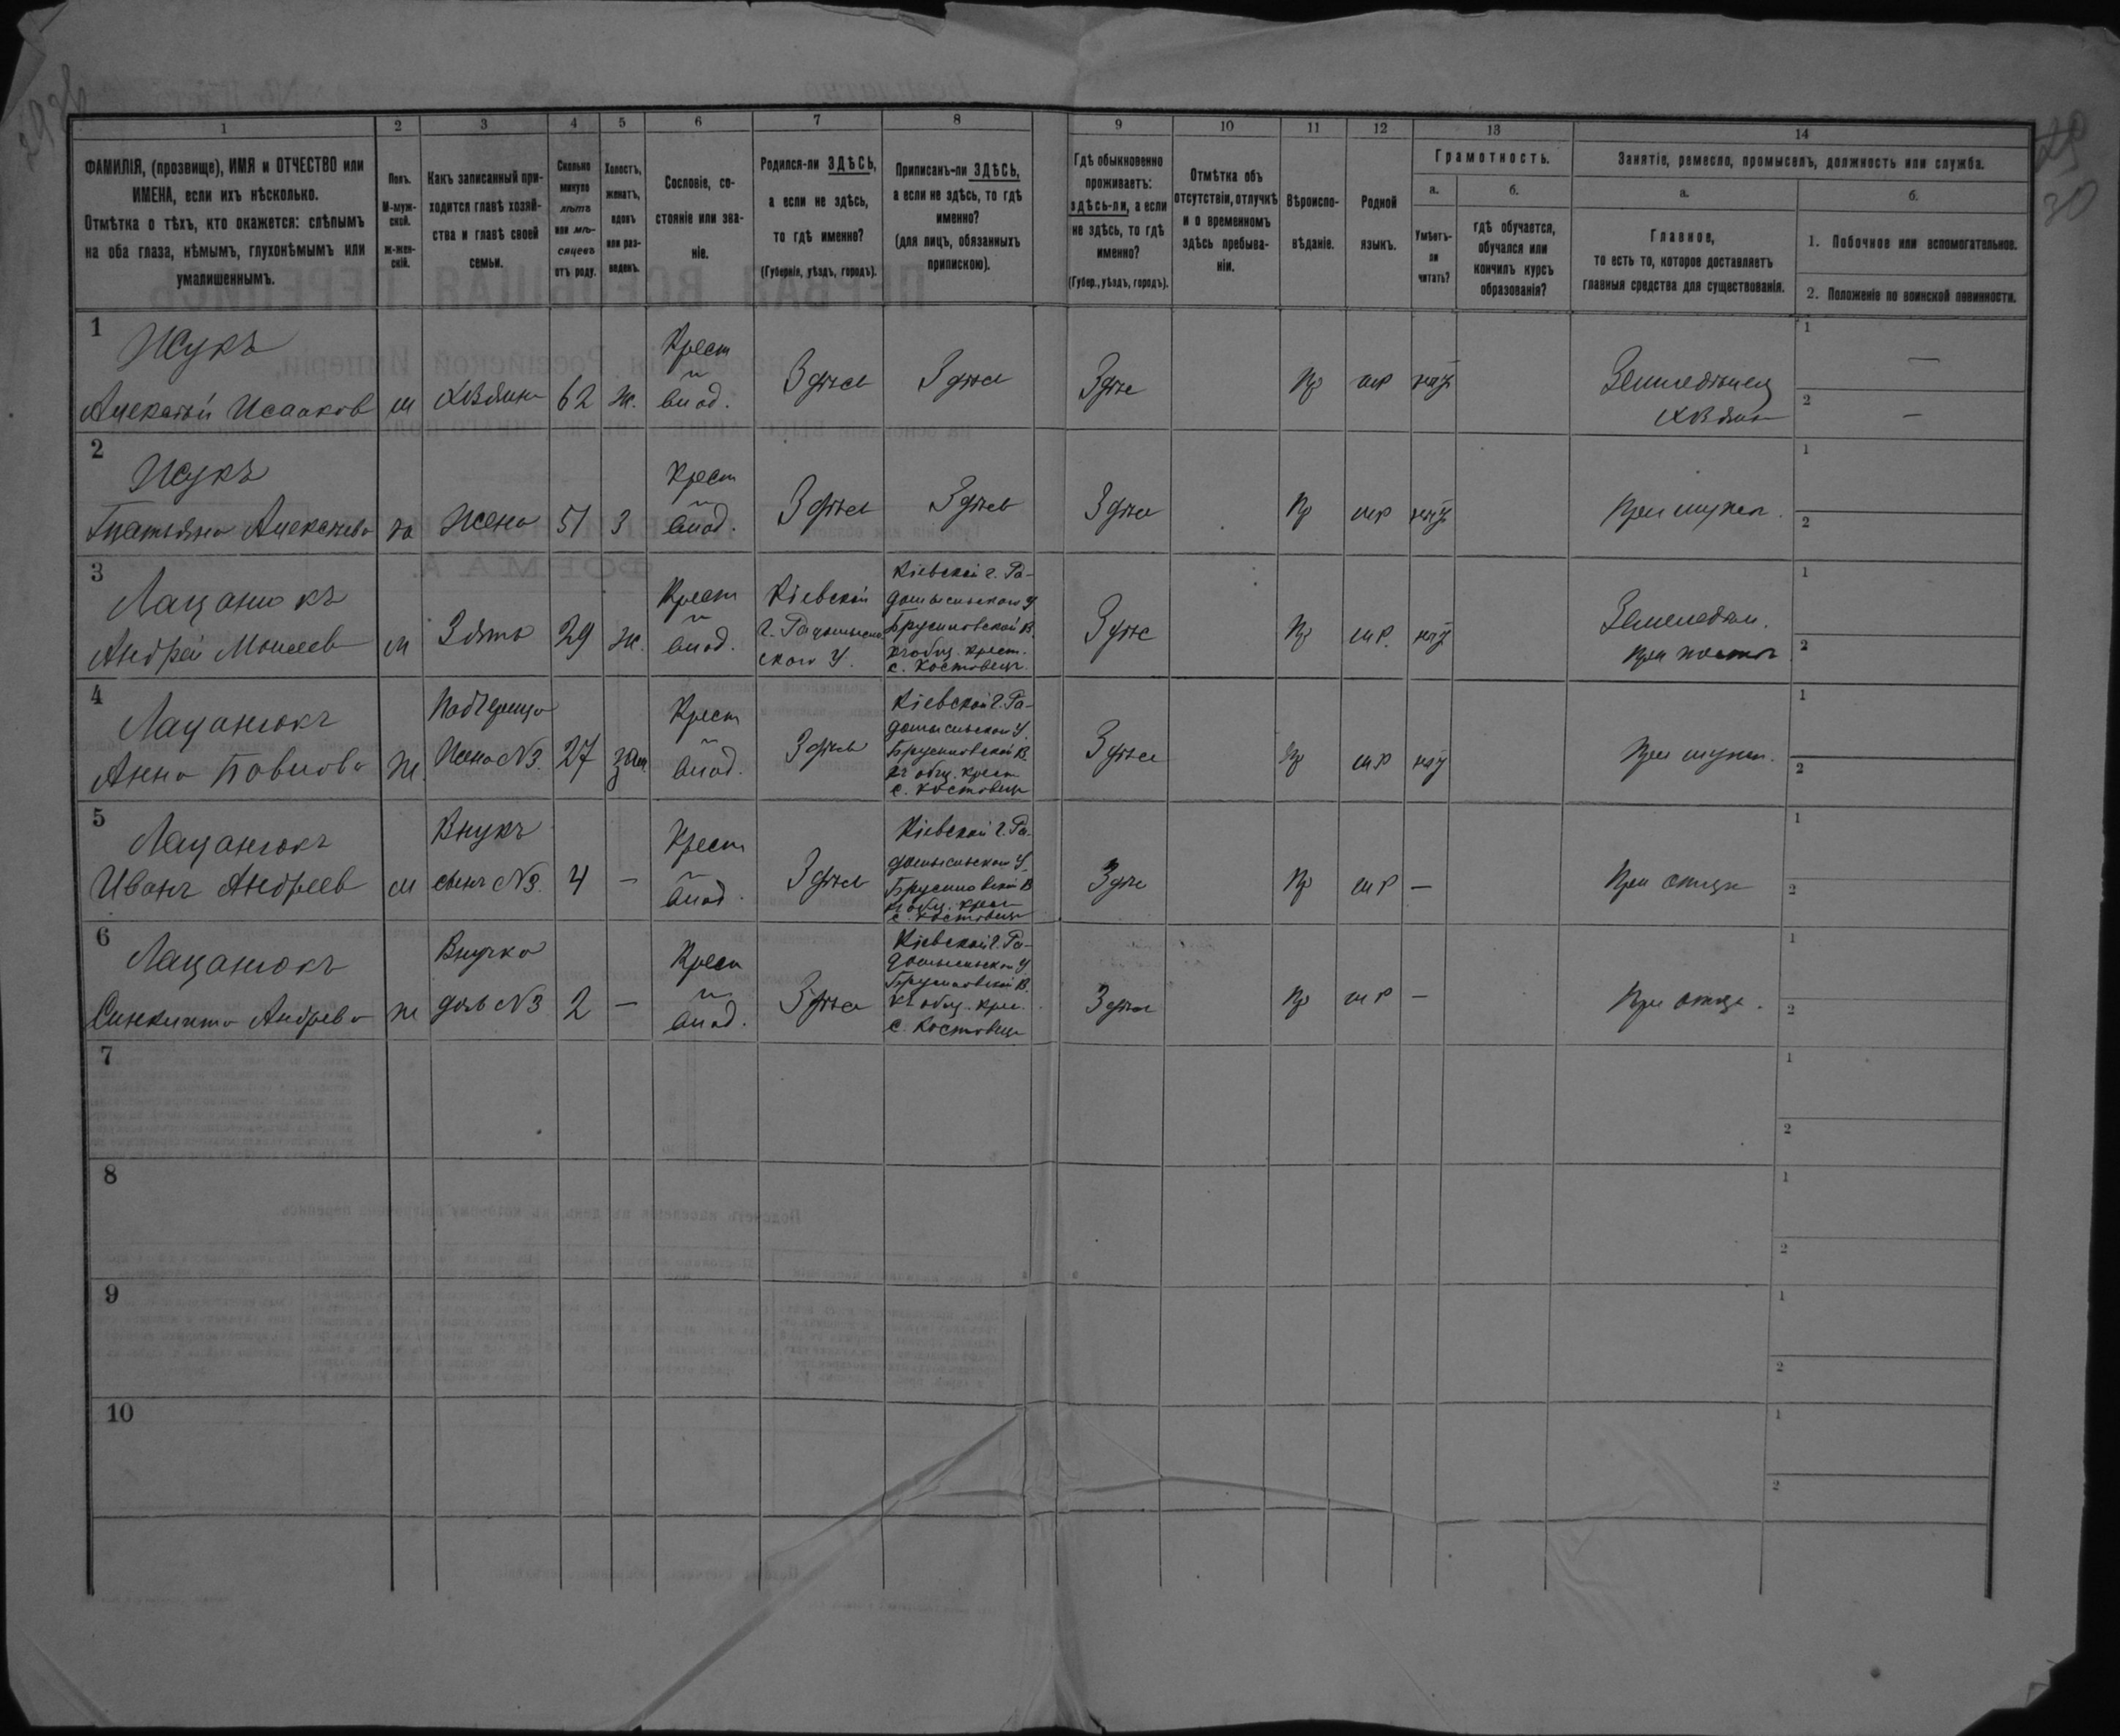 1 2 3 4 5 6 7 8 9 10 11 12 13 14
ФАМИЛІЯ, (прозвище), ИМЯ и ОТЧЕСТВО или
ИМЕНА, если ихъ нѣсколько.
Отмѣтка о тѣхъ, кто окажется: слѣпымъ
на оба глаза, нѣмымъ, глухонѣмымъ или
умалишеннымъ.
Полъ.
М-муж-
ской.
Ж-жен-
скій.
Какъ записанный при-
ходится главѣ хозяй-
ства и главѣ своей
семьи.
Сколько
минуло
лѣтъ
или мѣ-
сяцевъ
отъ роду.
Холостъ,
женатъ,
вдовъ
или раз-
веденъ.
Сословіе, со-
стояніе или зва-
ніе.
Родился-ли ЗДѢСЬ,
а если не здѣсь,
то гдѣ именно?
(Губернія, уѣздъ, городъ).
Приписанъ-ли ЗДѢСЬ,
а если не здѣсь, то гдѣ
именно?
(для лицъ, обязанныхъ
припискою).
Гдѣ обыкновенно
проживаетъ:
здѣсь-ли, а если
не здѣсь, то гдѣ
именно?
(Губер., уѣздъ, городъ).
Отмѣтка объ
отсутствіи, отлучкѣ
и о временномъ
здѣсь пребыва-
ніи.
Вѣроиспо-
вѣданіе.
Родной
языкъ.
Грамотность.
а.
Умѣетъ-
ли
читать?
б.
гдѣ обучается,
обучался или
кончилъ курсъ
образованія?
Занятіе, ремесло, промыселъ, должность или служба.
а.
Главное,
то есть то, которое доставляетъ
главныя средства для существованія.
б.
1. Побочное или вспомогательное.
2. Положеніе по воинской повинности.
1
Жукъ
Алексѣй Исааков
м
хозяин
62
ж.
Крест
из
влад.
Здѣсь
Здѣсь
Здѣсь
Пр
мр
нѣт
Земледѣлец
хозяин
1 —
2 —
2
Жукъ
Татьяна Алексѣева
Жена
51
З
Крест
из
влад.
Здѣсь
Здѣсь
Здѣсь
Пр
мр
нѣт
При мужѣ.
1
2
3
Лацанюкъ
Андрей Моисеев
м
Зять
29
ж.
Крест
из
влад.
Кіевской
г. Радомысль-
скаго У.
Кіевской г. Ра-
домысльскаго У
Брусиловской В.
къ общ. крест.
с. Костовецъ
Здѣсь
Пр
мр
нѣт
Земледѣл.
при тестѣ
1
2
4
Лацанюкъ
Анна Павлова
Ж.
Падчерица
Жена №3.
27
зам
Крест
из
влад.
Здѣсь
Кіевской г. Ра-
домысльскаго У.
Брусиловской В.
къ общ. крест
с. Костовецъ
Здѣсь
Пр
мр
нѣт
При мужѣ.
1
2
5
Лацанюкъ
Иванъ Андреев
м
Внукъ
сынъ №3.
4
—
Крест
из
влад.
Здѣсь
Кіевской г. Ра-
домысльскаго У.
Брусиловской В
къ общ. крест
с. Костовецъ
Здѣсь
Пр
мр
—
При отцѣ
1
2
6
Лацанюкъ
Андреева
ж
Внучка
дочь №3
2
—
Крест
из
влад.
Здѣсь
Кіевской г. Ра-
домысльскаго У
Брусиловской В.
къ общ. крес.
с. Костовецъ
Здѣсь
Пр
мр
—
При отцѣ.
1
2
7
1
2
8
1
2
9
1
2
10
1
2
30